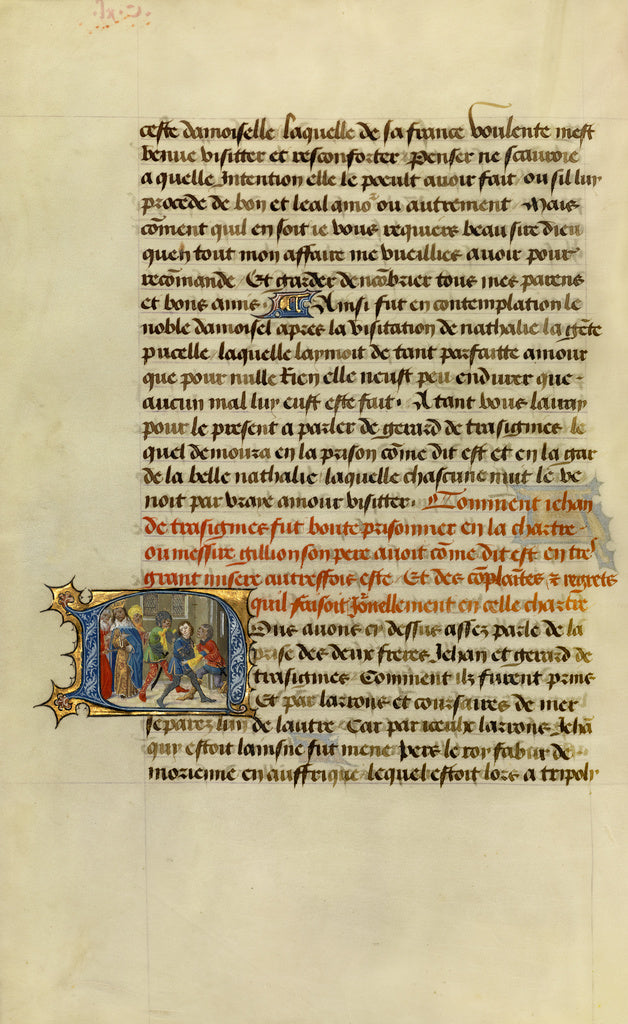 ceste damoiselle laquelle de sa france voulente mest
venue visitter et resconforter Penser ne scauroie
a quelle Intention elle le poeult auoir fait ou sil luy
procede de bon et leal amor ou autrement Mais
cōment quil en soit ie vous requiers beau sire dieu
quen tout mon affaire me vueillies auoir pour
recōmande Et garder dencōbrier tous mes parens
et bons amis Ainsi fut en contemplation le
noble damoisel apres la visitation de nathalie la gēte
pucelle laquelle laymoit de tant parfaitte amour
que pour nulle Rien elle neust peu endurer que
aucun mal luy eust este fait. A tant vous lairay
pour le present a parler de gerard de trasignies le
quel demoura en la prison cōme dit est et en la gar
de la belle nathalie laquelle chascune nuit le ve
noit par vraye amour visitter. Comment iehan
de trasignies fut boute prisonnier en la chartre
ou messire gillion son pere auoit cōme dit est en tres
grant misere autreffois este Et des cōplaintes et regretz
quil faisoit Jōnellement en celle chartre
Vous auons cy dessus assez parle de la
prise des deux freres Jehan et gerard de
trasignies Comment ilz furent prins
Et par larrons et coursaires de mer
separez lun de lautre Car par iceulx larrons Jehā
quy estoit laisne fut mene vers le roy fabur de
morienne en auffrique lequel estoit lors a tripoly